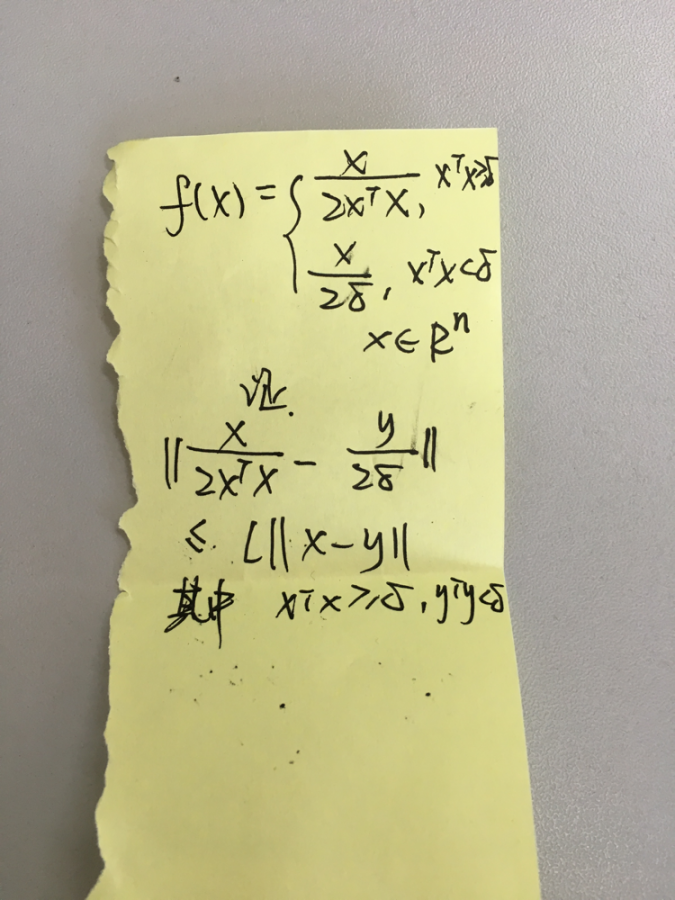 f(x) = { x / 2xᵀx, xᵀx ≥ δ
x / 2δ, xᵀx < δ
x ∈ Rⁿ
证.
‖ x / 2xᵀx − y / 2δ ‖
≤ L‖x − y‖
其中 xᵀx ≥ δ, yᵀy < δ